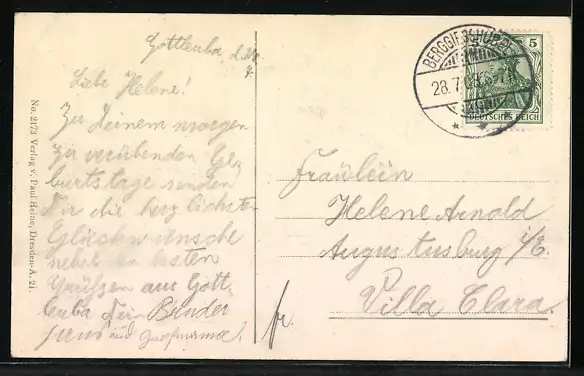 Gottleuba, d. 28.
7.
Liebe Helene!
Zu Deinem morgen
zu verübenden Ge-
burtstage senden
Dir die herzlichsten
Glückwünsche
nebst den besten
Grüßen aus Gott-
leuba Dein Bruder
und
No. 2173 Verlag v. Paul Heine, Dresden-A. 21.
BERGGIESSHÜBEL
28.7.
5
DEUTSCHES REICH
Fräulein
Helene Arnold
Augustusburg i/E.
Villa Clara.
fr.